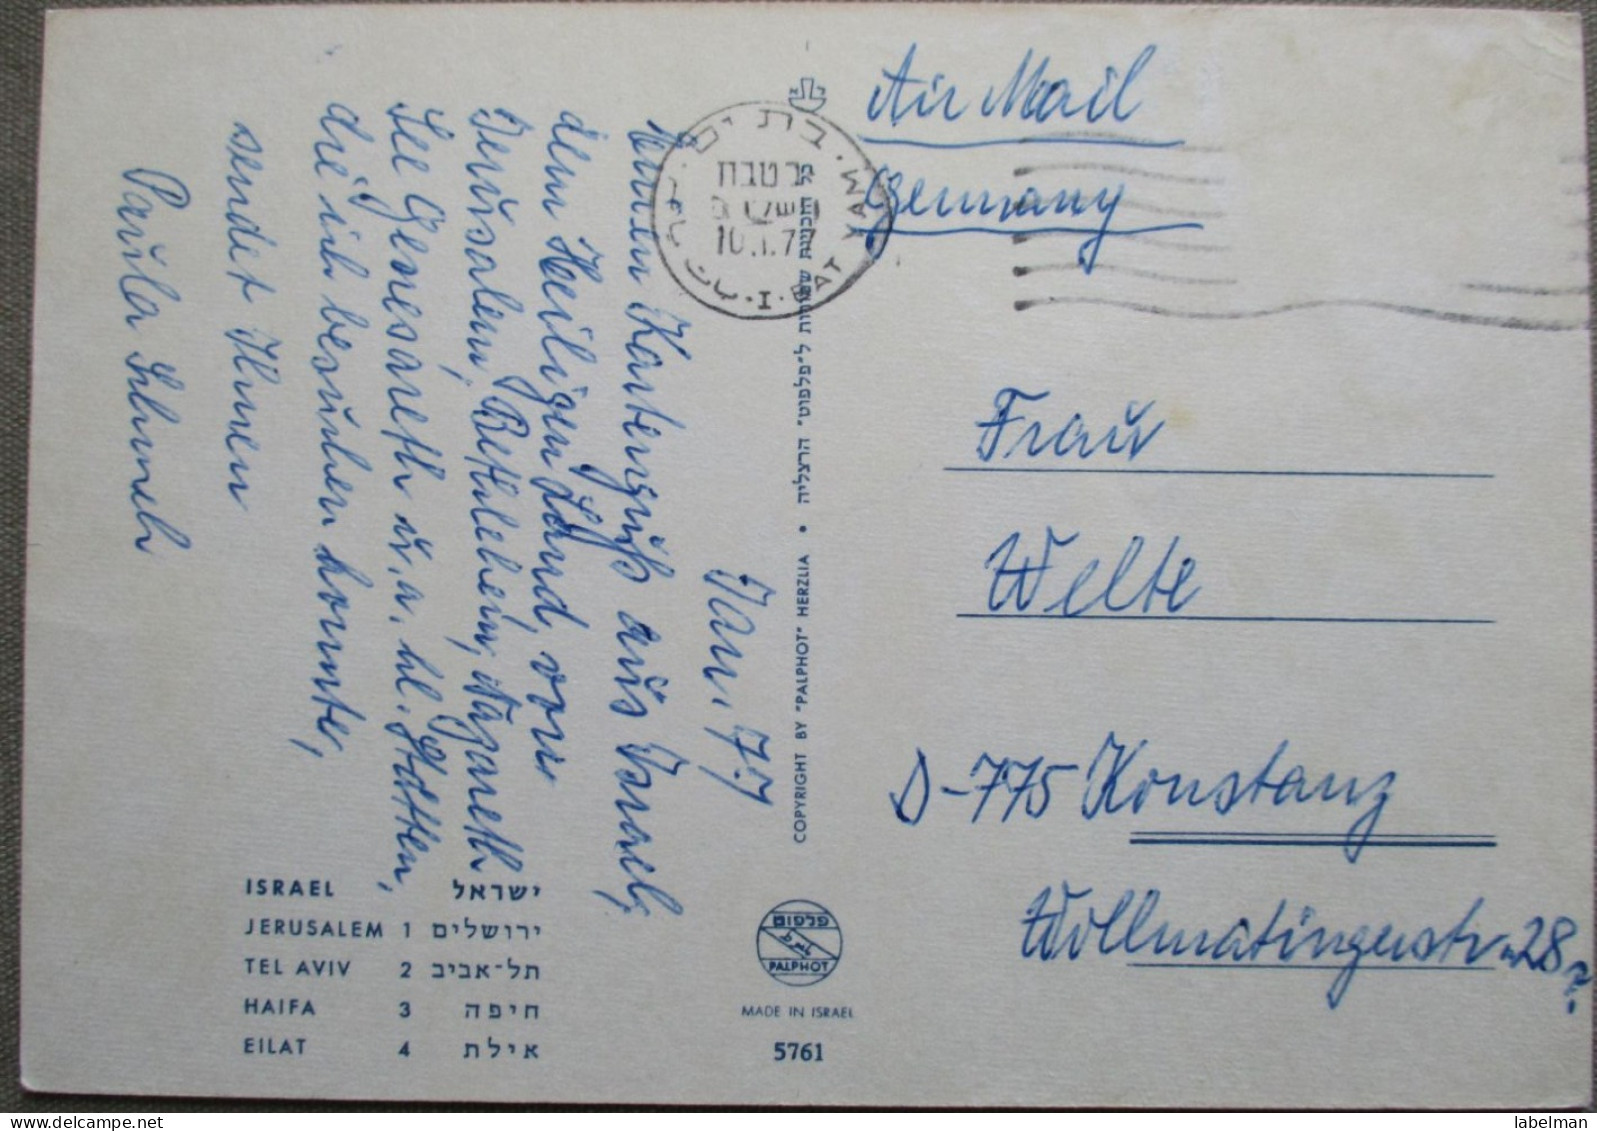 Air Mail
Germany
Frau
Welte
D-775 Konstanz
Wollmatingerstr. 28
Jan. 77
Kartengruß aus Israel,
dem Heiligen Land, von
Jerusalem, Bethlehem, Nazareth
See Genesareth u. a. hl. Stätten,
die ich besuchen konnte,
sendet Ihnen
Paula
בת ים
BAT YAM
10.1.77
כל הזכויות שמורות ל״פלפוט״ הרצליה • COPYRIGHT BY "PALPHOT" HERZLIA
ISRAEL ישראל
JERUSALEM 1 ירושלים
TEL AVIV 2 תל-אביב
HAIFA 3 חיפה
EILAT 4 אילת
פלפוט
PALPHOT
MADE IN ISRAEL
5761
delcampe.net
labelman